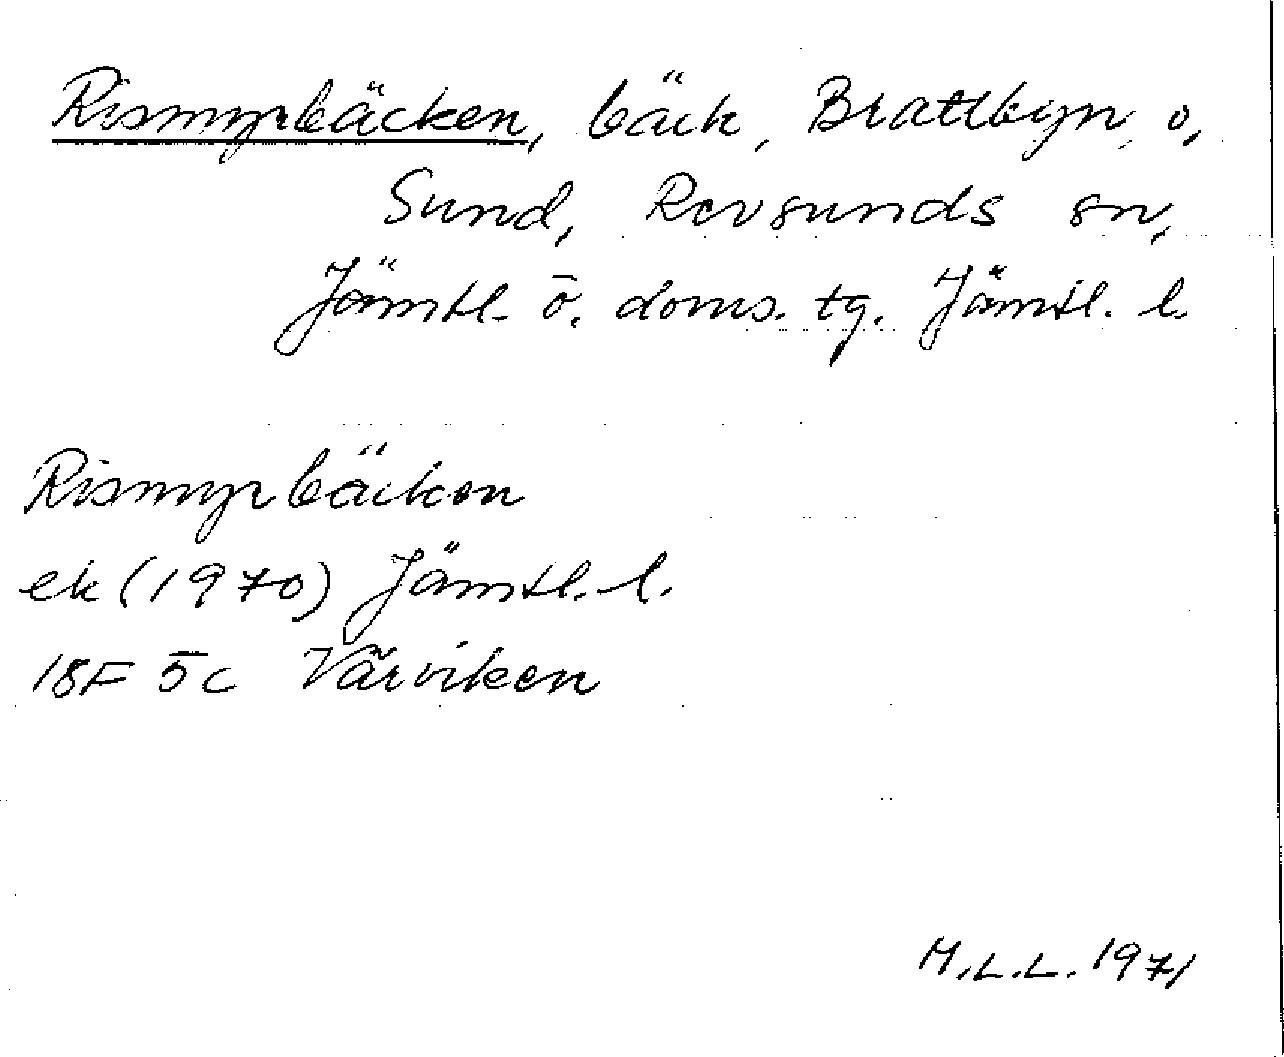 Rismyrbäcken, bäck, Brattbyn o,
Sund, Revsunds sn,
Jämtl. ö. doms. tg. Jämtl. l.
Rismyrbäcken
ek (1970) Jämtl. l.
18F 5c Värviken
M.L.L. 1971